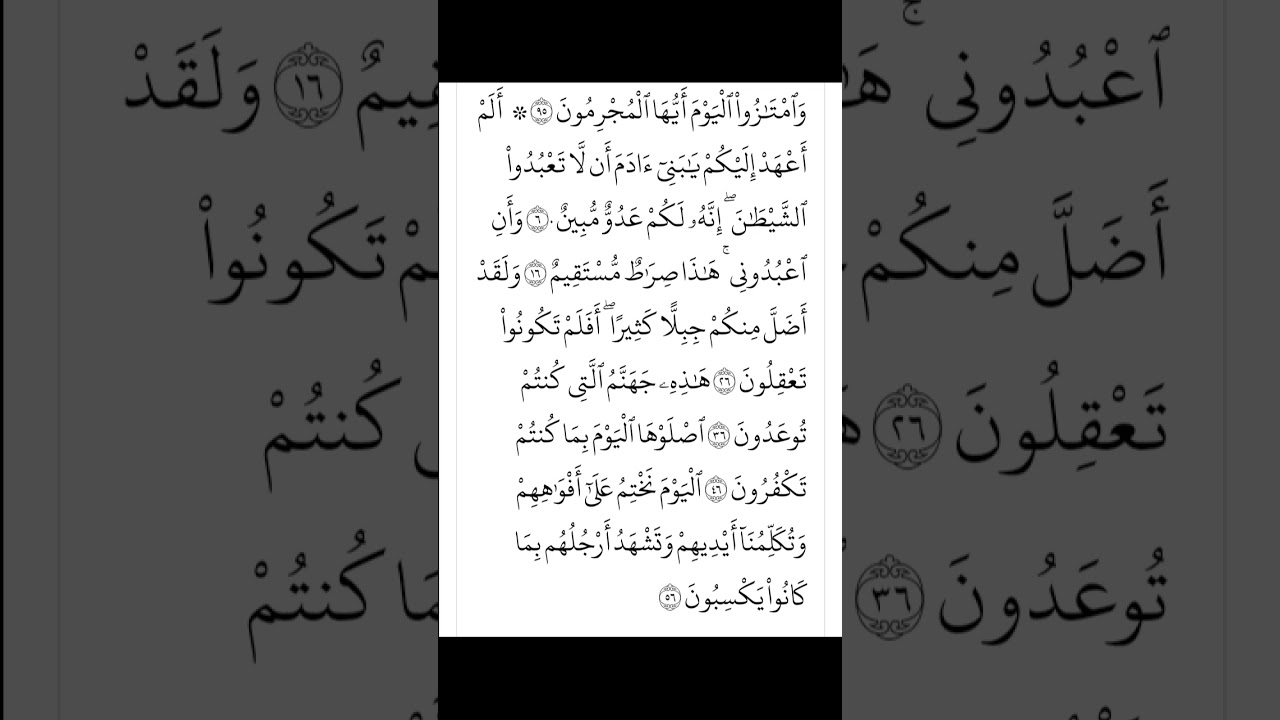 وَٱمْتَـٰزُوا۟ ٱلْيَوْمَ أَيُّهَا ٱلْمُجْرِمُونَ ٩٥ ۞ أَلَمْ
أَعْهَدْ إِلَيْكُمْ يَـٰبَنِىٓ ءَادَمَ أَن لَّا تَعْبُدُوا۟
ٱلشَّيْطَـٰنَ ۖ إِنَّهُۥ لَكُمْ عَدُوٌّ مُّبِينٌ ٠٦ وَأَنِ
ٱعْبُدُونِى ۚ هَـٰذَا صِرَٰطٌ مُّسْتَقِيمٌ ١٦ وَلَقَدْ
أَضَلَّ مِنكُمْ جِبِلًّا كَثِيرًا ۖ أَفَلَمْ تَكُونُوا۟
تَعْقِلُونَ ٢٦ هَـٰذِهِۦ جَهَنَّمُ ٱلَّتِى كُنتُمْ
تُوعَدُونَ ٣٦ ٱصْلَوْهَا ٱلْيَوْمَ بِمَا كُنتُمْ
تَكْفُرُونَ ٤٦ ٱلْيَوْمَ نَخْتِمُ عَلَىٰٓ أَفْوَٰهِهِمْ
وَتُكَلِّمُنَآ أَيْدِيهِمْ وَتَشْهَدُ أَرْجُلُهُم بِمَا
كَانُوا۟ يَكْسِبُونَ ٥٦